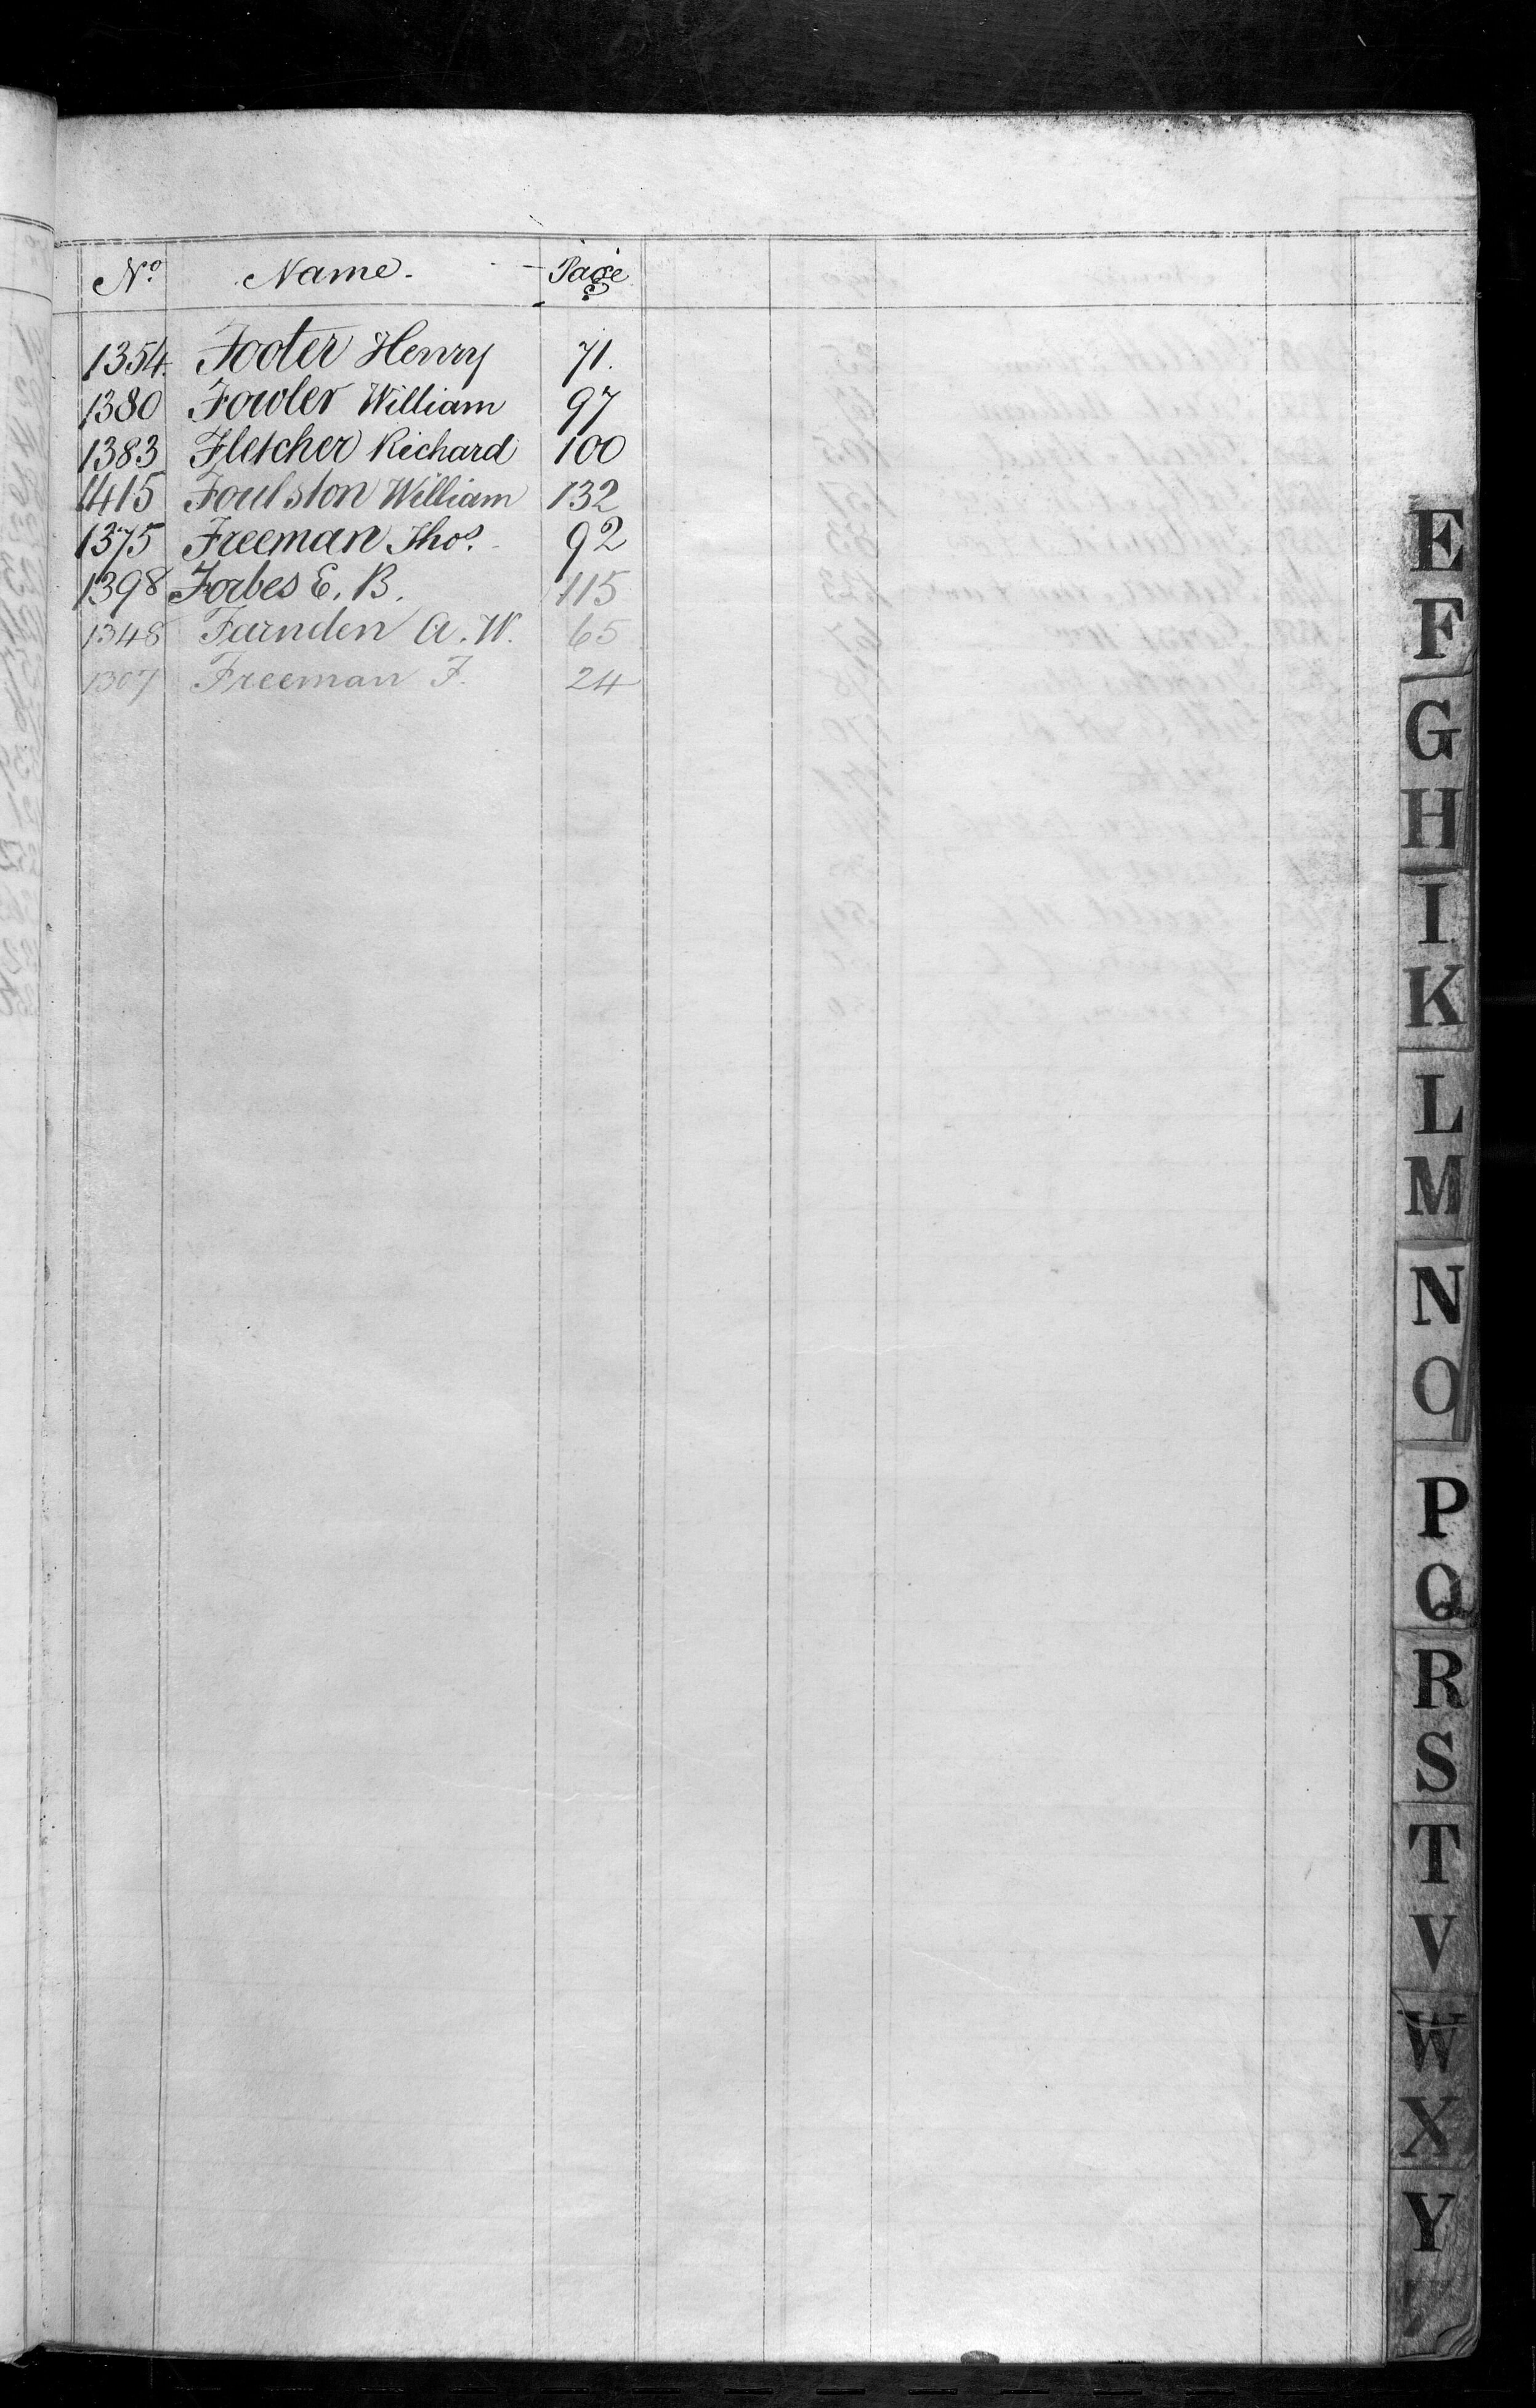 No. Name. Page
1354. Footer Henry 71.
1380 Fowler William 97
1383 Fletcher Richard 100
1415 Foulston William 132
1375 Freeman Thos. 92
1398 Forbes E. B. 115
1348 Farnden A. W. 65
1307 Freeman F. 24
E
F
G
H
I
K
L
M
N
O
P
Q
R
S
T
V
W
X
Y